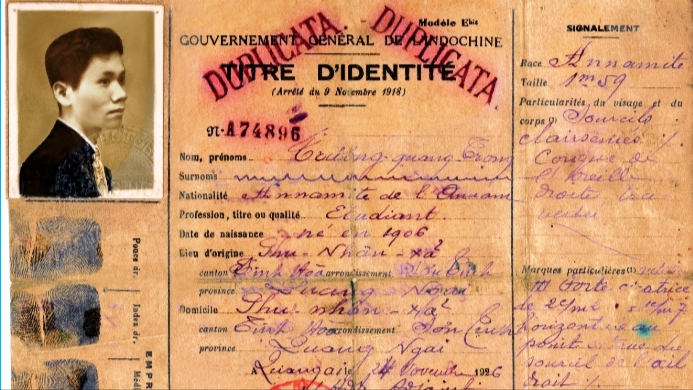 Modèle Ebis
DUPLICATA. DUPLICATA.
GOUVERNEMENT GÉNÉRAL DE L'INDOCHINE
TITRE D'IDENTITÉ
(Arrêté du 9 Novembre 1918)
N° A74896
Nom, prénoms Trương quang Trọng
Surnoms
Nationalité Annamite de l'Annam
Profession, titre ou qualité. Etudiant
Date de naissance né en 1906
Lieu d'origine Thu - Nhân - xã
canton Tinh Hoa arrondissement Sơn Tinh
province. Quang Ngai
Domicile Thu nhân - xã
canton Tinh Hoa arrondissement Son Tinh
province Quang Ngai
Quangngai, le 24 Novembre 1926
Pouce dr.
Index dr.
EMPR
SIGNALEMENT
Race Annamite
Taille 1m59
Particularités du visage et du
corps Sourcils
clairsemés
Conque de
l'oreille
droite
Marques particulières
forte cicatrice
de
point
sourcil de l'œil
droit